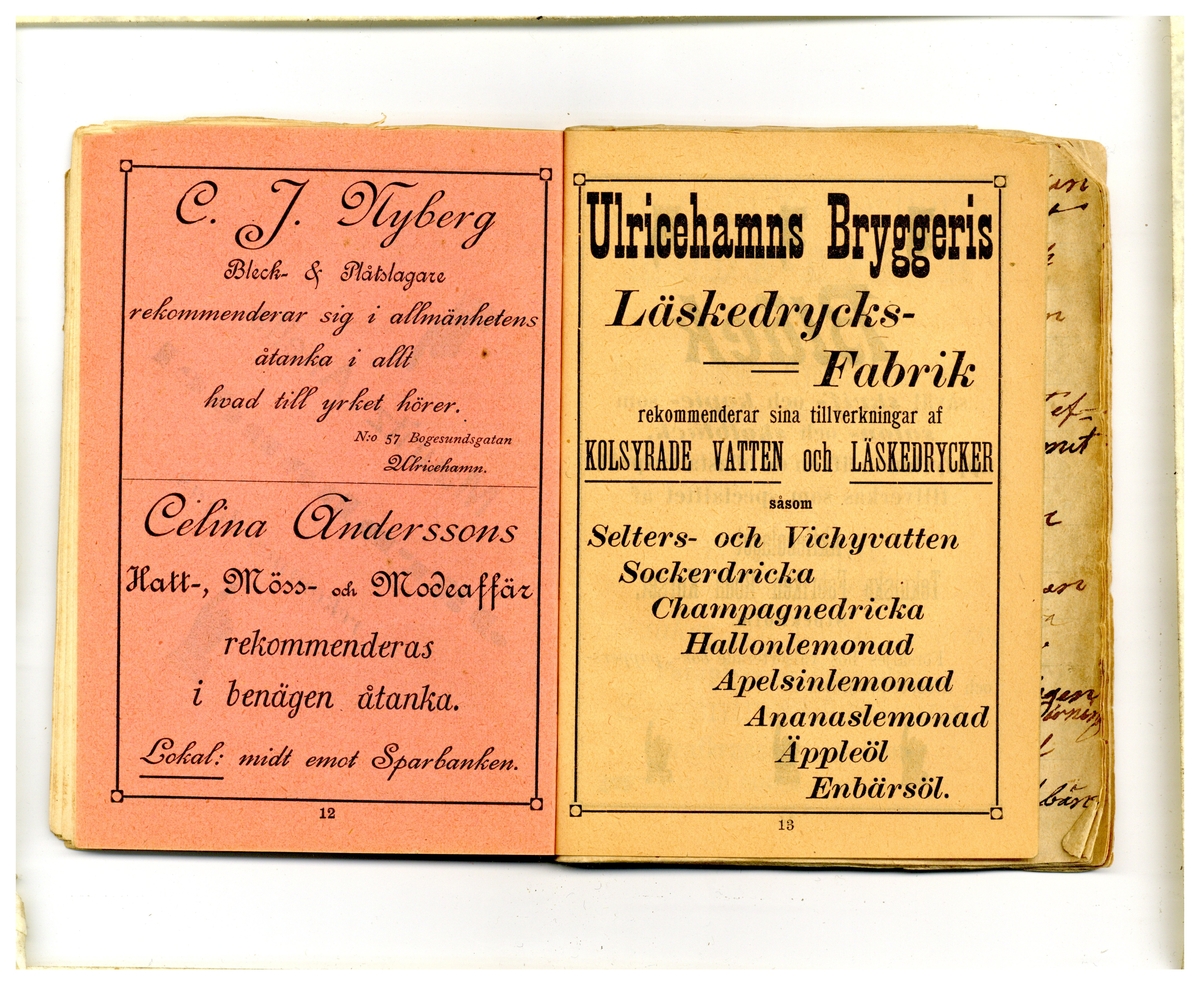 C. J. Nyberg
Bleck- & Plåtslagare
rekommenderar sig i allmänhetens
åtanka i allt
hvad till yrket hörer.
N:o 57 Bogesundsgatan
Ulricehamn.
Celina Anderssons
Hatt-, Möss- och Modeaffär
rekommenderas
i benägen åtanka.
Lokal: midt emot Sparbanken.
12
Ulricehamns Bryggeris
Läskedrycks-
Fabrik
rekommenderar sina tillverkningar af
KOLSYRADE VATTEN och LÄSKEDRYCKER
såsom
Selters- och Vichyvatten
Sockerdricka
Champagnedricka
Hallonlemonad
Apelsinlemonad
Ananaslemonad
Äppleöl
Enbärsöl.
13